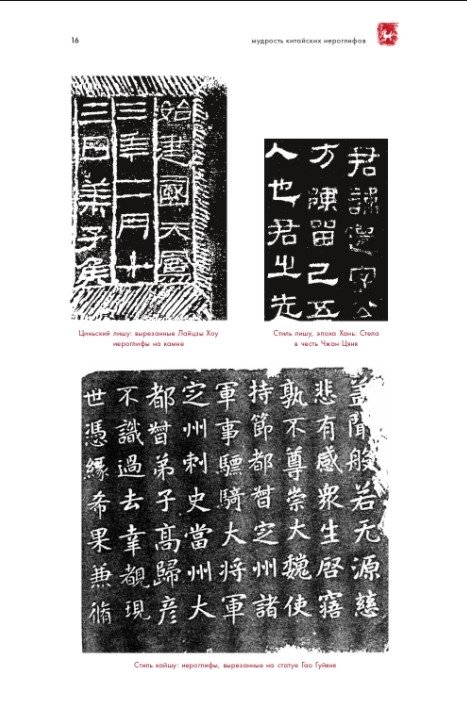 16
мудрость китайских иероглифов
始建國天鳳
三年二月十
三日萊子侯
Циньский лишу: вырезанные Лайцзы Хоу
иероглифы на камне
君諱遷字公
方陳留己吾
人也君之先
Стиль лишу, эпоха Хань: Стела
в честь Чжан Цяня
蓋聞般若无源慈
悲有感衆生啓寤
孰不尊崇大魏使
持節都督定州諸
軍事驃騎大将軍
定州刺史當州大
都督弟子高歸彦
不識過去幸覩現
世憑緣希果兼脩
Стиль кайшу: иероглифы, вырезанные на статуе Гао Гуйяня